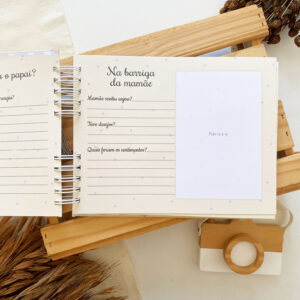 o papai?
Na barriga
da mamãe
Mamãe sentiu enjoo?
Teve desejos?
Quais foram os sentimentos?